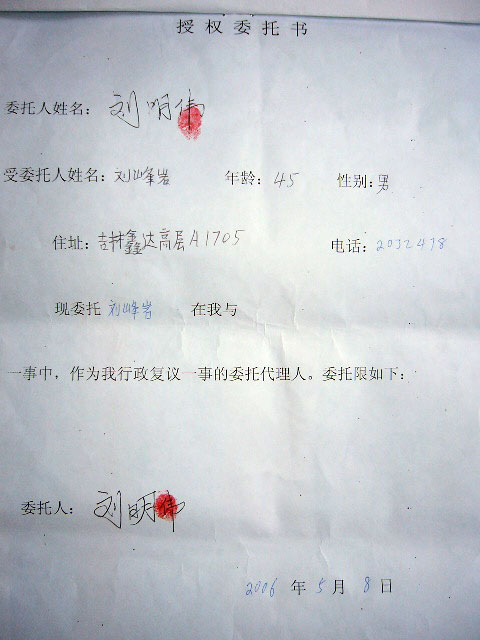 授权委托书
委托人姓名：刘明伟
受委托人姓名：刘峰岩 年龄：45 性别：男
住址：吉林鑫达高层A1705 电话：2032438
现委托 刘峰岩 在我与
一事中，作为我行政复议一事的委托代理人。委托限如下：
委托人：刘明伟
2006 年 5 月 8 日